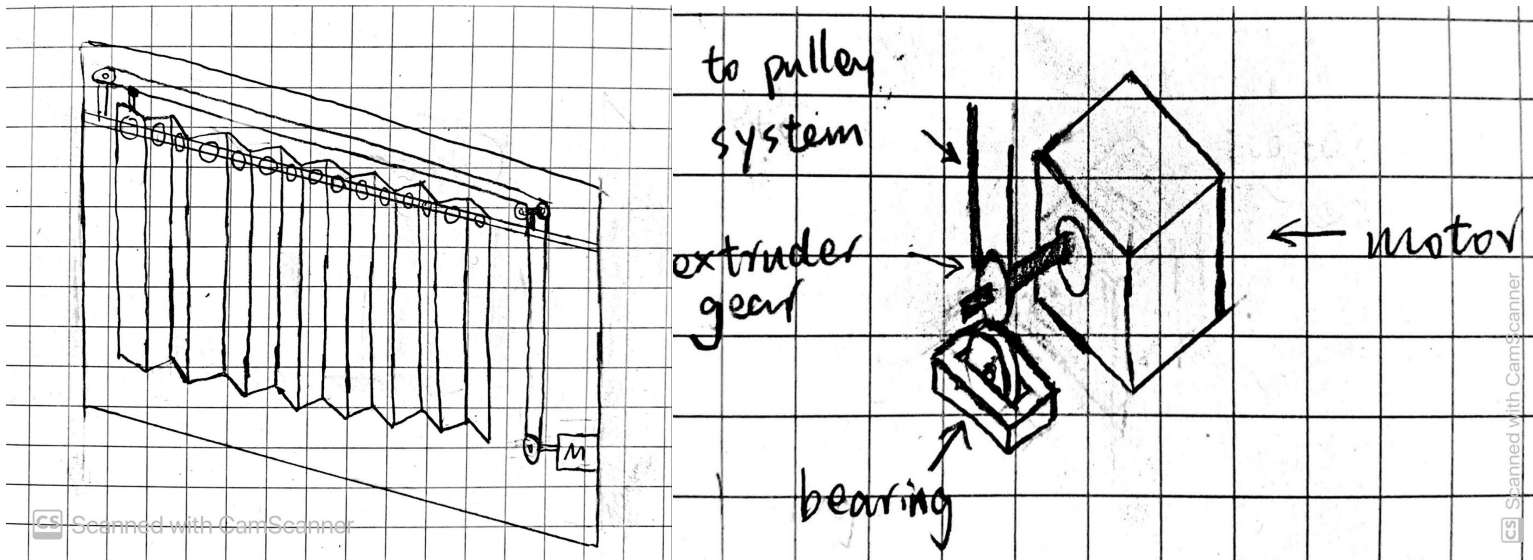 M
CS Scanned with CamScanner
to pulley
system
extruder
gear
motor
bearing
CS Scanned with CamScanner